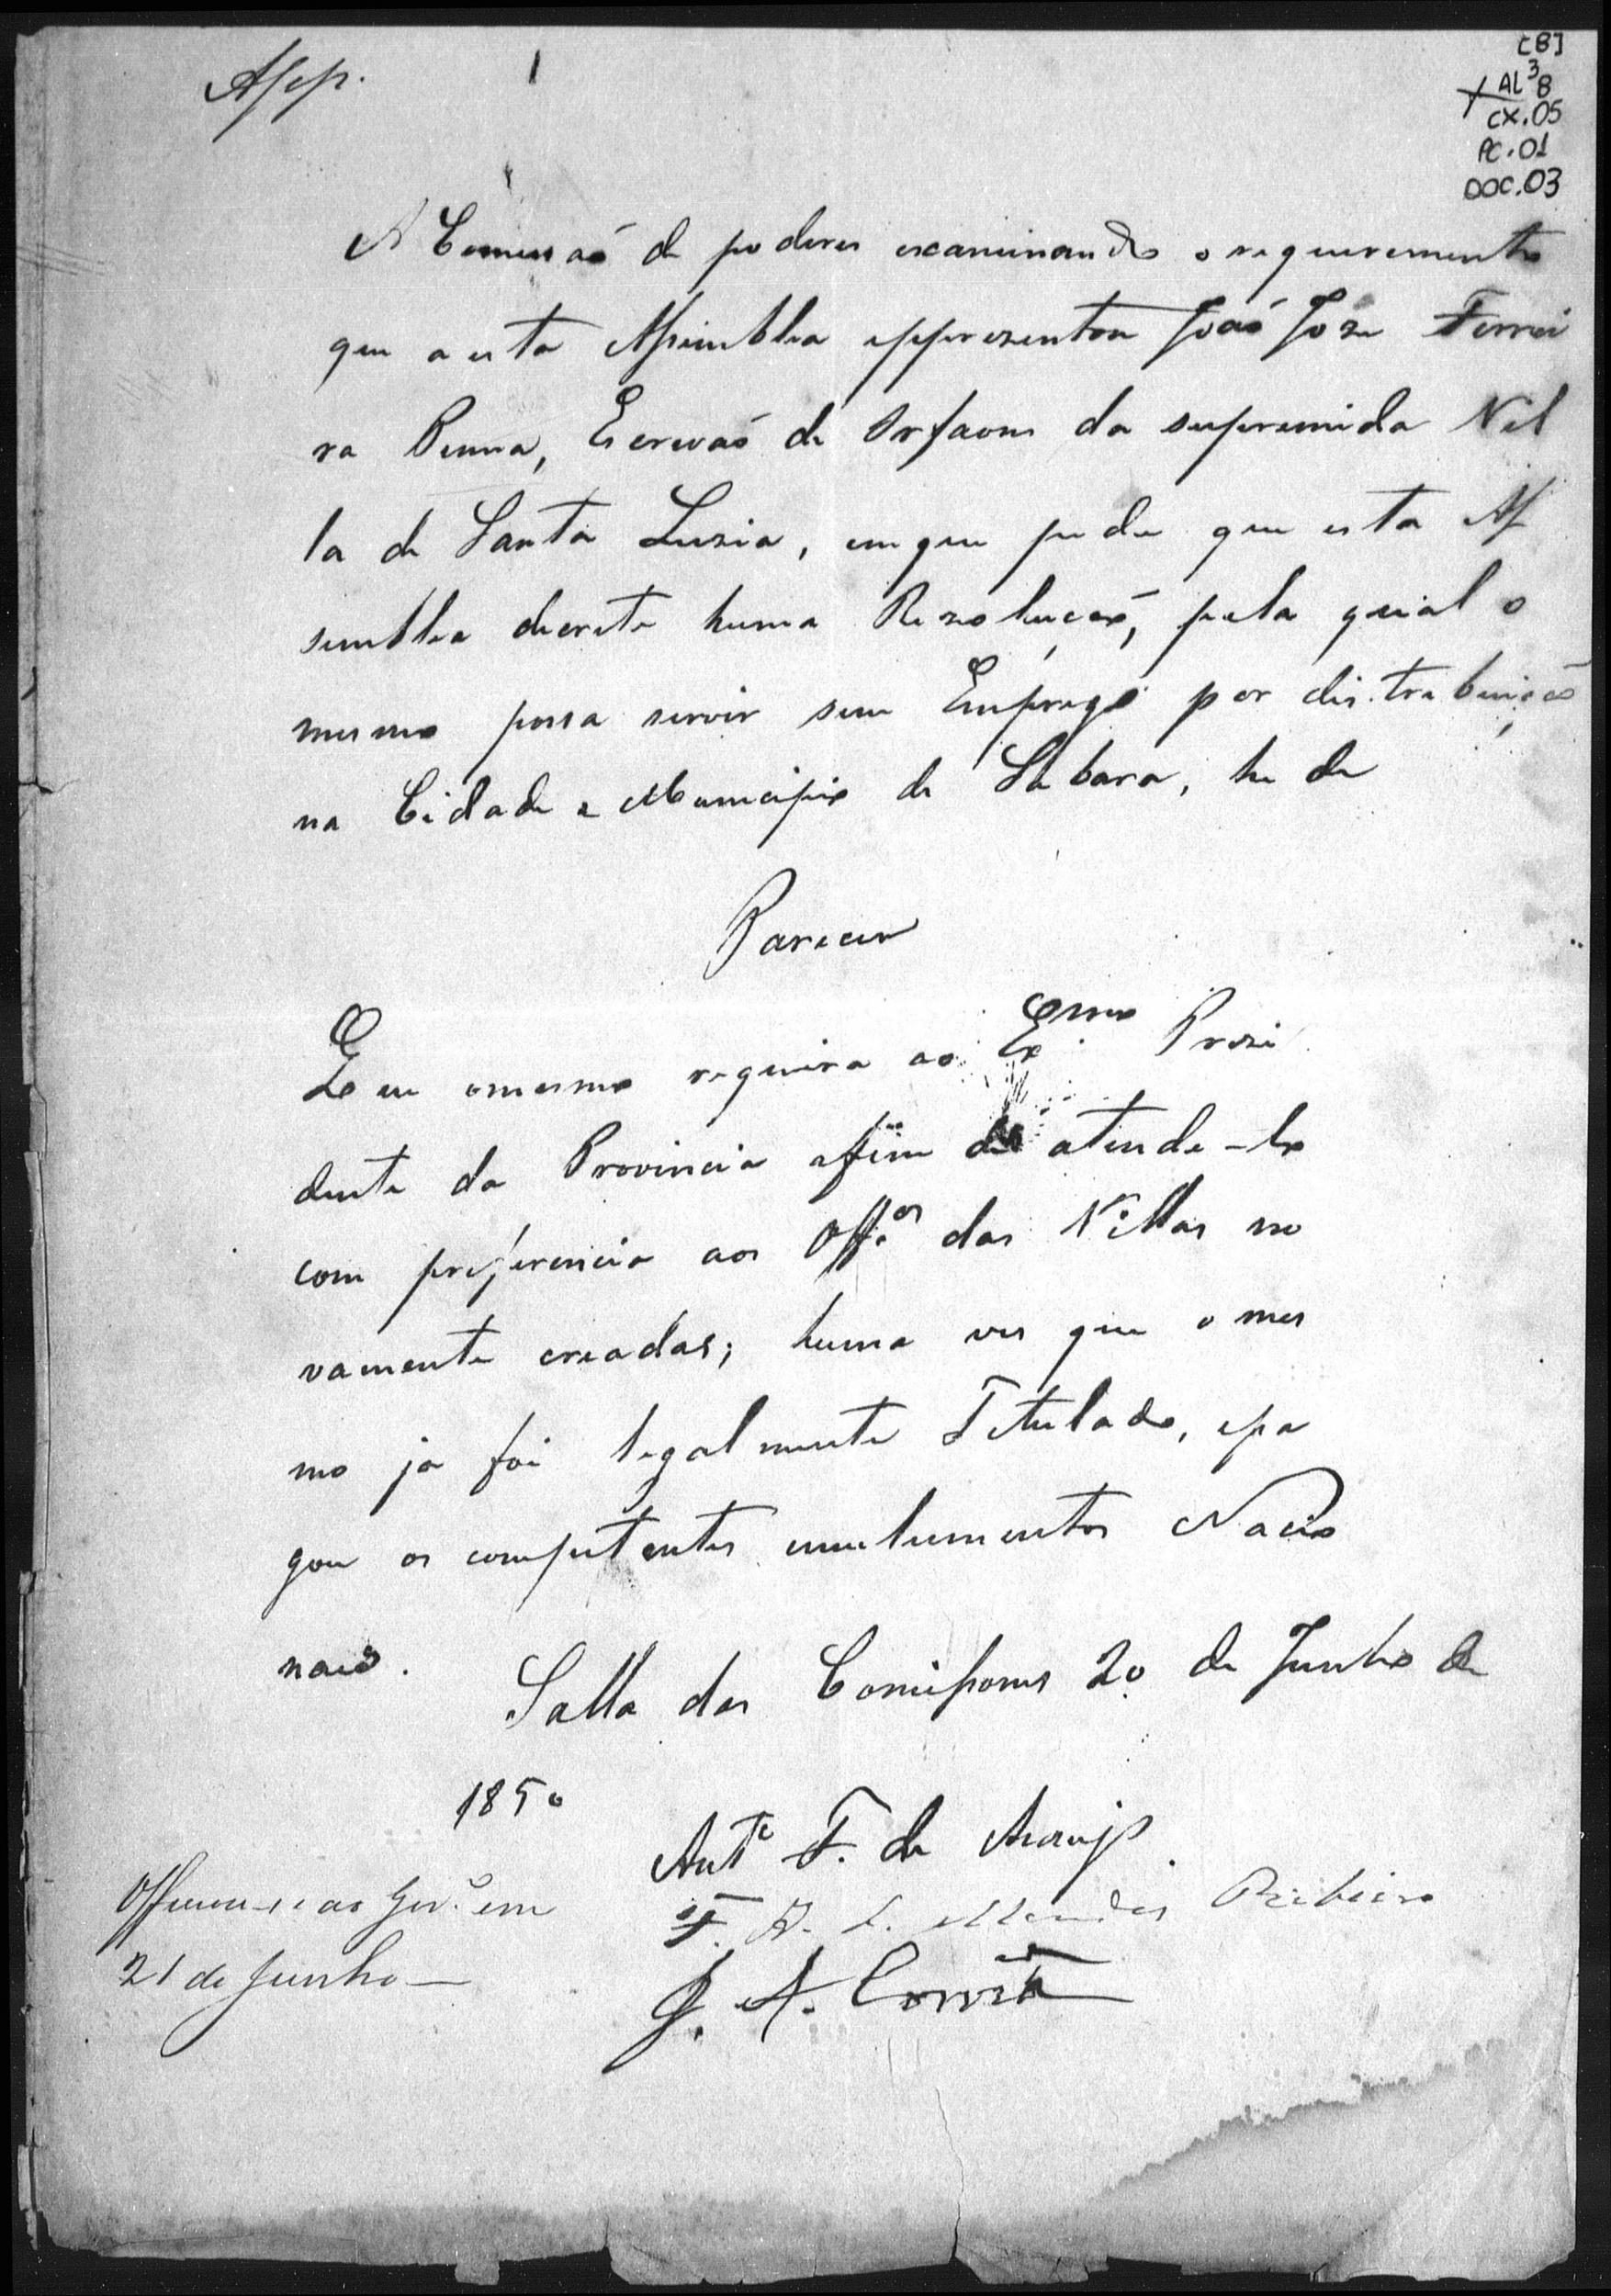 App.
1
[8]
AL³ 8
CX.05
PC.01
DOC.03
A Comissaõ de poderes examinando o requerimento
que a esta Assemblea appresentou Joaõ Jose Ferrei
ra Penna, Escrivaõ de Orfaons da supremida Vil
la de Santa Lusia, em que pede que esta As
semblea decrete huma Resoluçaõ, pela qual o
mesmo possa servir seu Emprego por distribuiçaõ
na Cidade e Municipio de Sabara, he de
Parecer
Que o mesmo requeira ao Exmo Presi
dente da Provincia afim de atende-lo
com preferencia aos Off.os das Villas no
vamente creadas; huma ves que o mes
mo ja foi legalmente Titulado, e pa
gou os competentes emulumentos Nacio
nais.
Salla das Comissoens 20 de Junho de
1850
Ant.º F. de Araujo
F. A. L. Mendes Ribeiro
J. A. Corrêa
Officiou-se ao Gov.º em
21 de Junho —